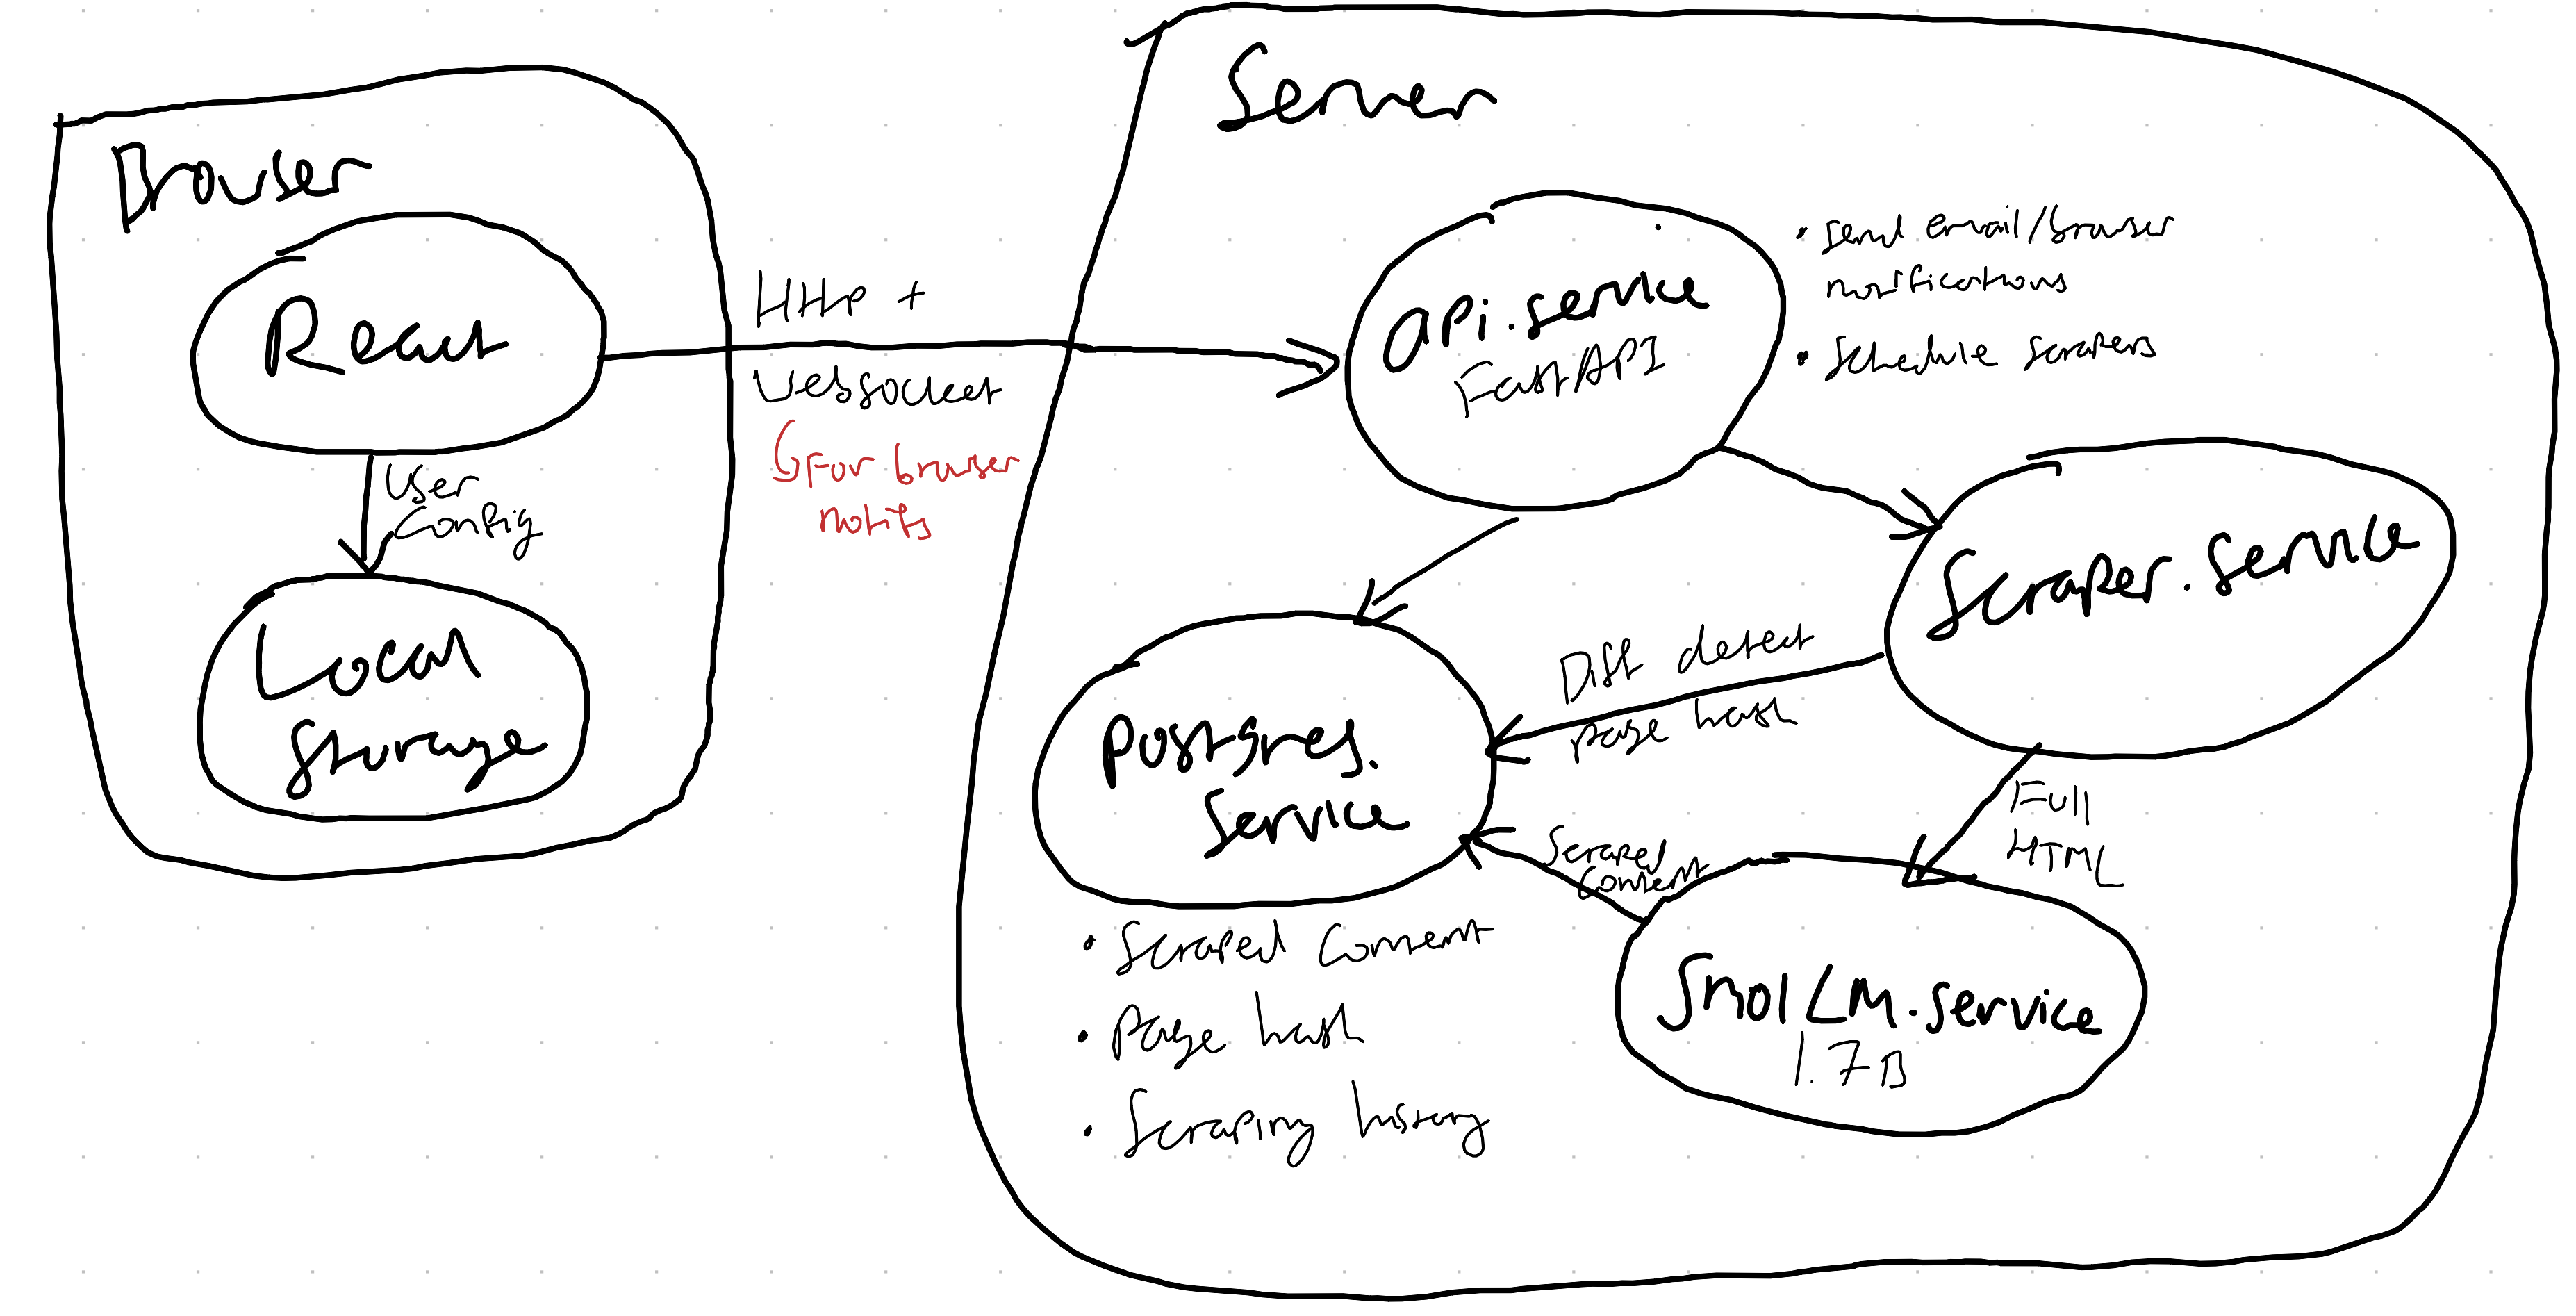 Browser
React
User
Config
Local
Storage
HTTP +
Websocket
For browser
notifs
Server
api.service
FastAPI
• Send email/browser
notifications
• Schedule scrapers
Scraper.service
Diff detect
page hash
Full
HTML
Postgres.
service
Scraped
content
SmolLM.service
1.7B
• Scraped content
• Page hash
• Scraping history